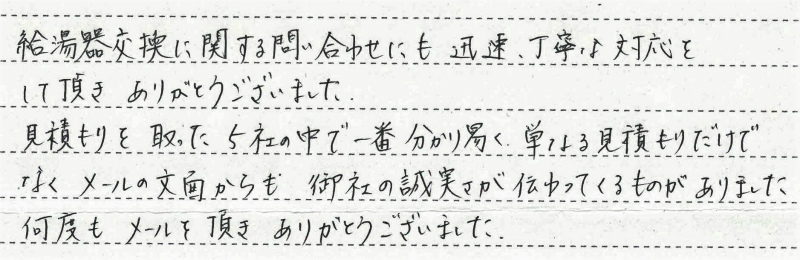 給湯器交換に関する問い合わせにも 迅速、丁寧な対応を
して頂き ありがとうございました.
見積もりを 取った 5社の中で一番 分かり易く. 単なる見積もりだけで
なく メールの文面からも 御社の誠実さが 伝わってくるものがありました
何度も メールを 頂き ありがとうございました.